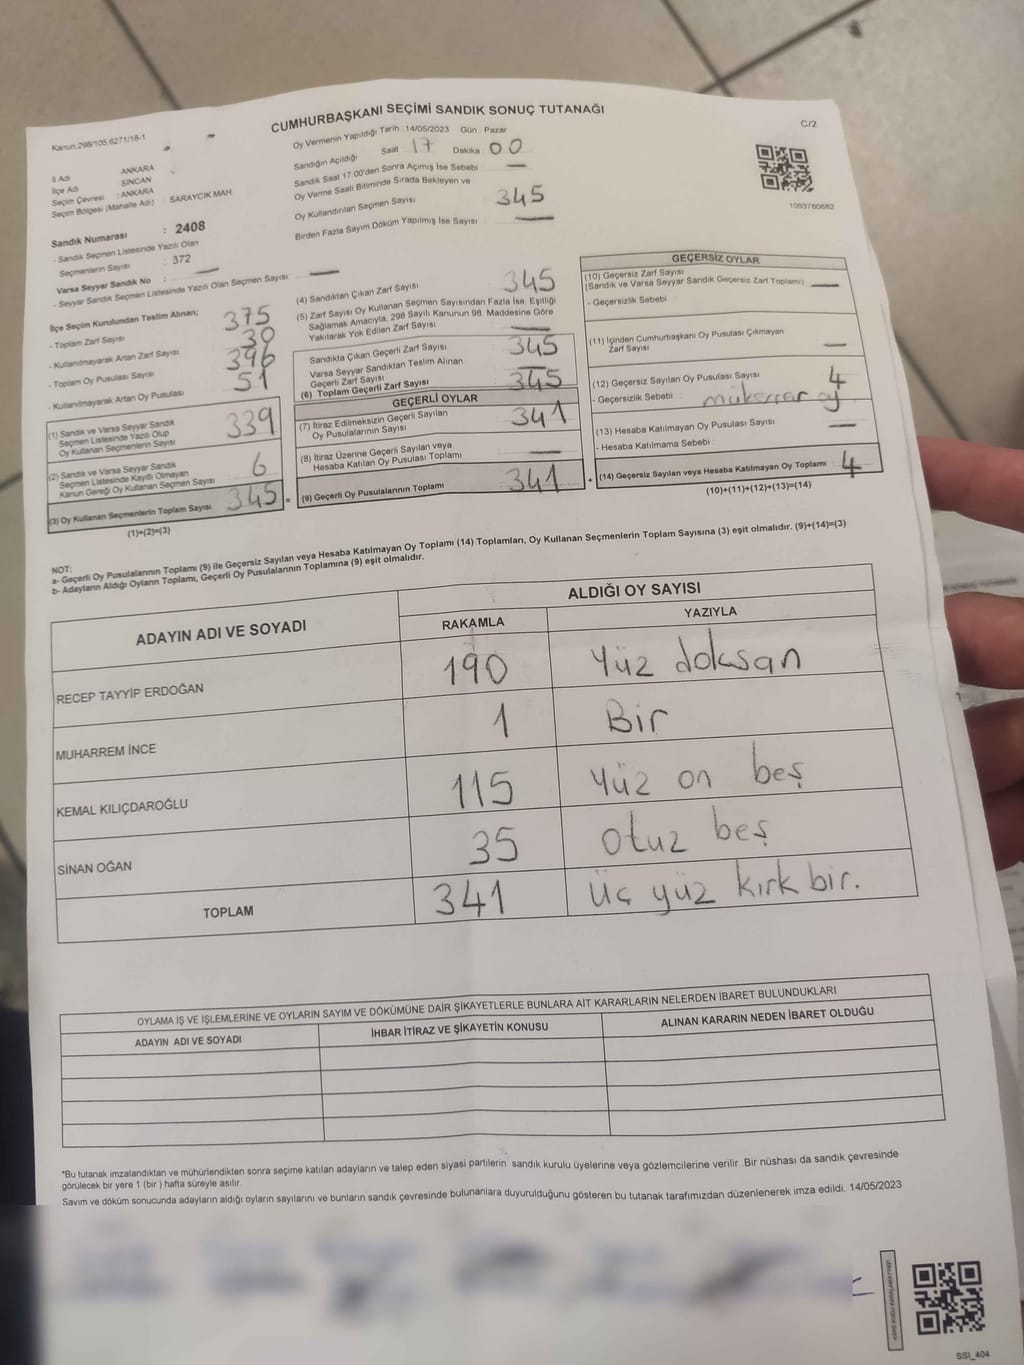 Kanun.298/105;6271/18-1
CUMHURBAŞKANI SEÇİMİ SANDIK SONUÇ TUTANAĞI
C/2
Oy Vermenin Yapıldığı Tarih 14/05/2023 Gün Pazar
Sandığın Açıldığı Saat 17 Dakika 00
Sandık Saat 17.00'den Sonra Açımış İse Sebebi —
Oy Verme Saati Bitiminde Sırada Bekleyen ve
Oy Kullandırılan Seçmen Sayısı 345
Birden Fazla Sayım Döküm Yapılmış İse Sayısı —
1093780682
İl Adı ANKARA
İlçe Adı SİNCAN
Seçim Çevresi : ANKARA
Seçim Bölgesi (Mahalle Adı) SARAYCIK MAH.
Sandık Numarası : 2408
- Sandık Seçmen Listesinde Yazılı Olan
Seçmenlerin Sayısı : 372
Varsa Seyyar Sandık No : —
- Seyyar Sandık Seçmen Listesinde Yazılı Olan Seçmen Sayısı —
İlçe Seçim Kurulundan Teslim Alınan;
- Toplam Zarf Sayısı 375
- Kullanılmayarak Artan Zarf Sayısı 30
- Toplam Oy Pusulası Sayısı 396
- Kullanılmayarak Artan Oy Pusulası 51
(1) Sandık ve Varsa Seyyar Sandık
Seçmen Listesinde Yazılı Olup
Oy Kullanan Seçmenlerin Sayısı 339
(2) Sandık ve Varsa Seyyar Sandık
Seçmen Listesinde Kayıtlı Olmayan
Kanun Gereği Oy Kullanan Seçmen Sayısı 6
(3) Oy Kullanan Seçmenlerin Toplam Sayısı 345 =
(1)+(2)=(3)
(4) Sandıktan Çıkan Zarf Sayısı 345
(5) Zarf Sayısı Oy Kullanan Seçmen Sayısından Fazla İse, Eşitliği
Sağlamak Amacıyla, 298 Sayılı Kanunun 98. Maddesine Göre
Yakılarak Yok Edilen Zarf Sayısı —
Sandıkta Çıkan Geçerli Zarf Sayısı 345
Varsa Seyyar Sandıktan Teslim Alınan
Geçerli Zarf Sayısı —
(6) Toplam Geçerli Zarf Sayısı 345
GEÇERLİ OYLAR
(7) İtiraz Edilmeksizin Geçerli Sayılan
Oy Pusulalarının Sayısı 341
(8) İtiraz Üzerine Geçerli Sayılan veya
Hesaba Katılan Oy Pusulası Toplamı —
(9) Geçerli Oy Pusulalarının Toplamı 341 +
GEÇERSİZ OYLAR
(10) Geçersiz Zarf Sayısı
(Sandık ve Varsa Seyyar Sandık Geçersiz Zarf Toplamı) —
- Geçersizlik Sebebi :
(11) İçinden Cumhurbaşkanı Oy Pusulası Çıkmayan
Zarf Sayısı —
(12) Geçersiz Sayılan Oy Pusulası Sayısı 4
- Geçersizlik Sebebi : mükerrar oy
(13) Hesaba Katılmayan Oy Pusulası Sayısı —
- Hesaba Katılmama Sebebi :
(14) Geçersiz Sayılan veya Hesaba Katılmayan Oy Toplamı 4
(10)+(11)+(12)+(13)=(14)
NOT:
a- Geçerli Oy Pusulalarının Toplamı (9) ile Geçersiz Sayılan veya Hesaba Katılmayan Oy Toplamı (14) Toplamları, Oy Kullanan Seçmenlerin Toplam Sayısına (3) eşit olmalıdır. (9)+(14)=(3)
b- Adayların Aldığı Oyların Toplamı, Geçerli Oy Pusulalarının Toplamına (9) eşit olmalıdır.
ADAYIN ADI VE SOYADI
ALDIĞI OY SAYISI
RAKAMLA YAZIYLA
RECEP TAYYİP ERDOĞAN 190 Yüz doksan
MUHARREM İNCE 1 Bir
KEMAL KILIÇDAROĞLU 115 Yüz on beş
SİNAN OĞAN 35 otuz beş
TOPLAM 341 üç yüz kırk bir.
OYLAMA İŞ VE İŞLEMLERİNE VE OYLARIN SAYIM VE DÖKÜMÜNE DAİR ŞİKAYETLERLE BUNLARA AİT KARARLARIN NELERDEN İBARET BULUNDUKLARI
ADAYIN ADI VE SOYADI İHBAR İTİRAZ VE ŞİKAYETİN KONUSU ALINAN KARARIN NEDEN İBARET OLDUĞU
*Bu tutanak imzalandıktan ve mühürlendikten sonra seçime katılan adayların ve talep eden siyasi partilerin sandık kurulu üyelerine veya gözlemcilerine verilir .Bir nüshası da sandık çevresinde
görülecek bir yere 1 (bir ) hafta süreyle asılır.
Sayım ve döküm sonucunda adayların aldığı oyların sayılarını ve bunların sandık çevresinde bulunanlara duyurulduğunu gösteren bu tutanak tarafımızdan düzenlenerek imza edildi. 14/05/2023
SSI_404